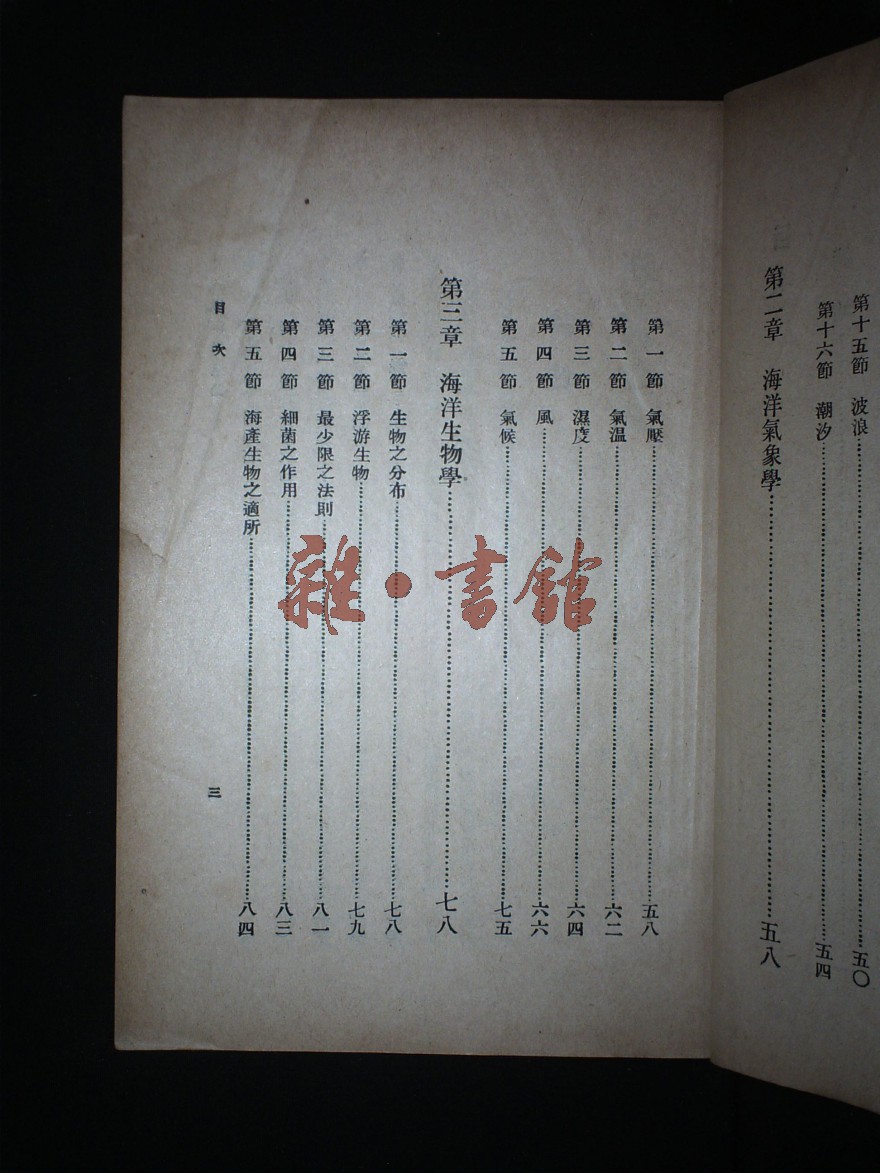 第十五節 波浪……五〇
第十六節 潮汐……五四
第二章 海洋氣象學……五八
第一節 氣壓……五八
第二節 氣温……六二
第三節 濕度……六四
第四節 風……六六
第五節 氣候……七五
第三章 海洋生物學……七八
第一節 生物之分布……七八
第二節 浮游生物……七九
第三節 最少限之法則……八一
第四節 細菌之作用……八三
第五節 海產生物之適所……八四
目次
三
雜·書館